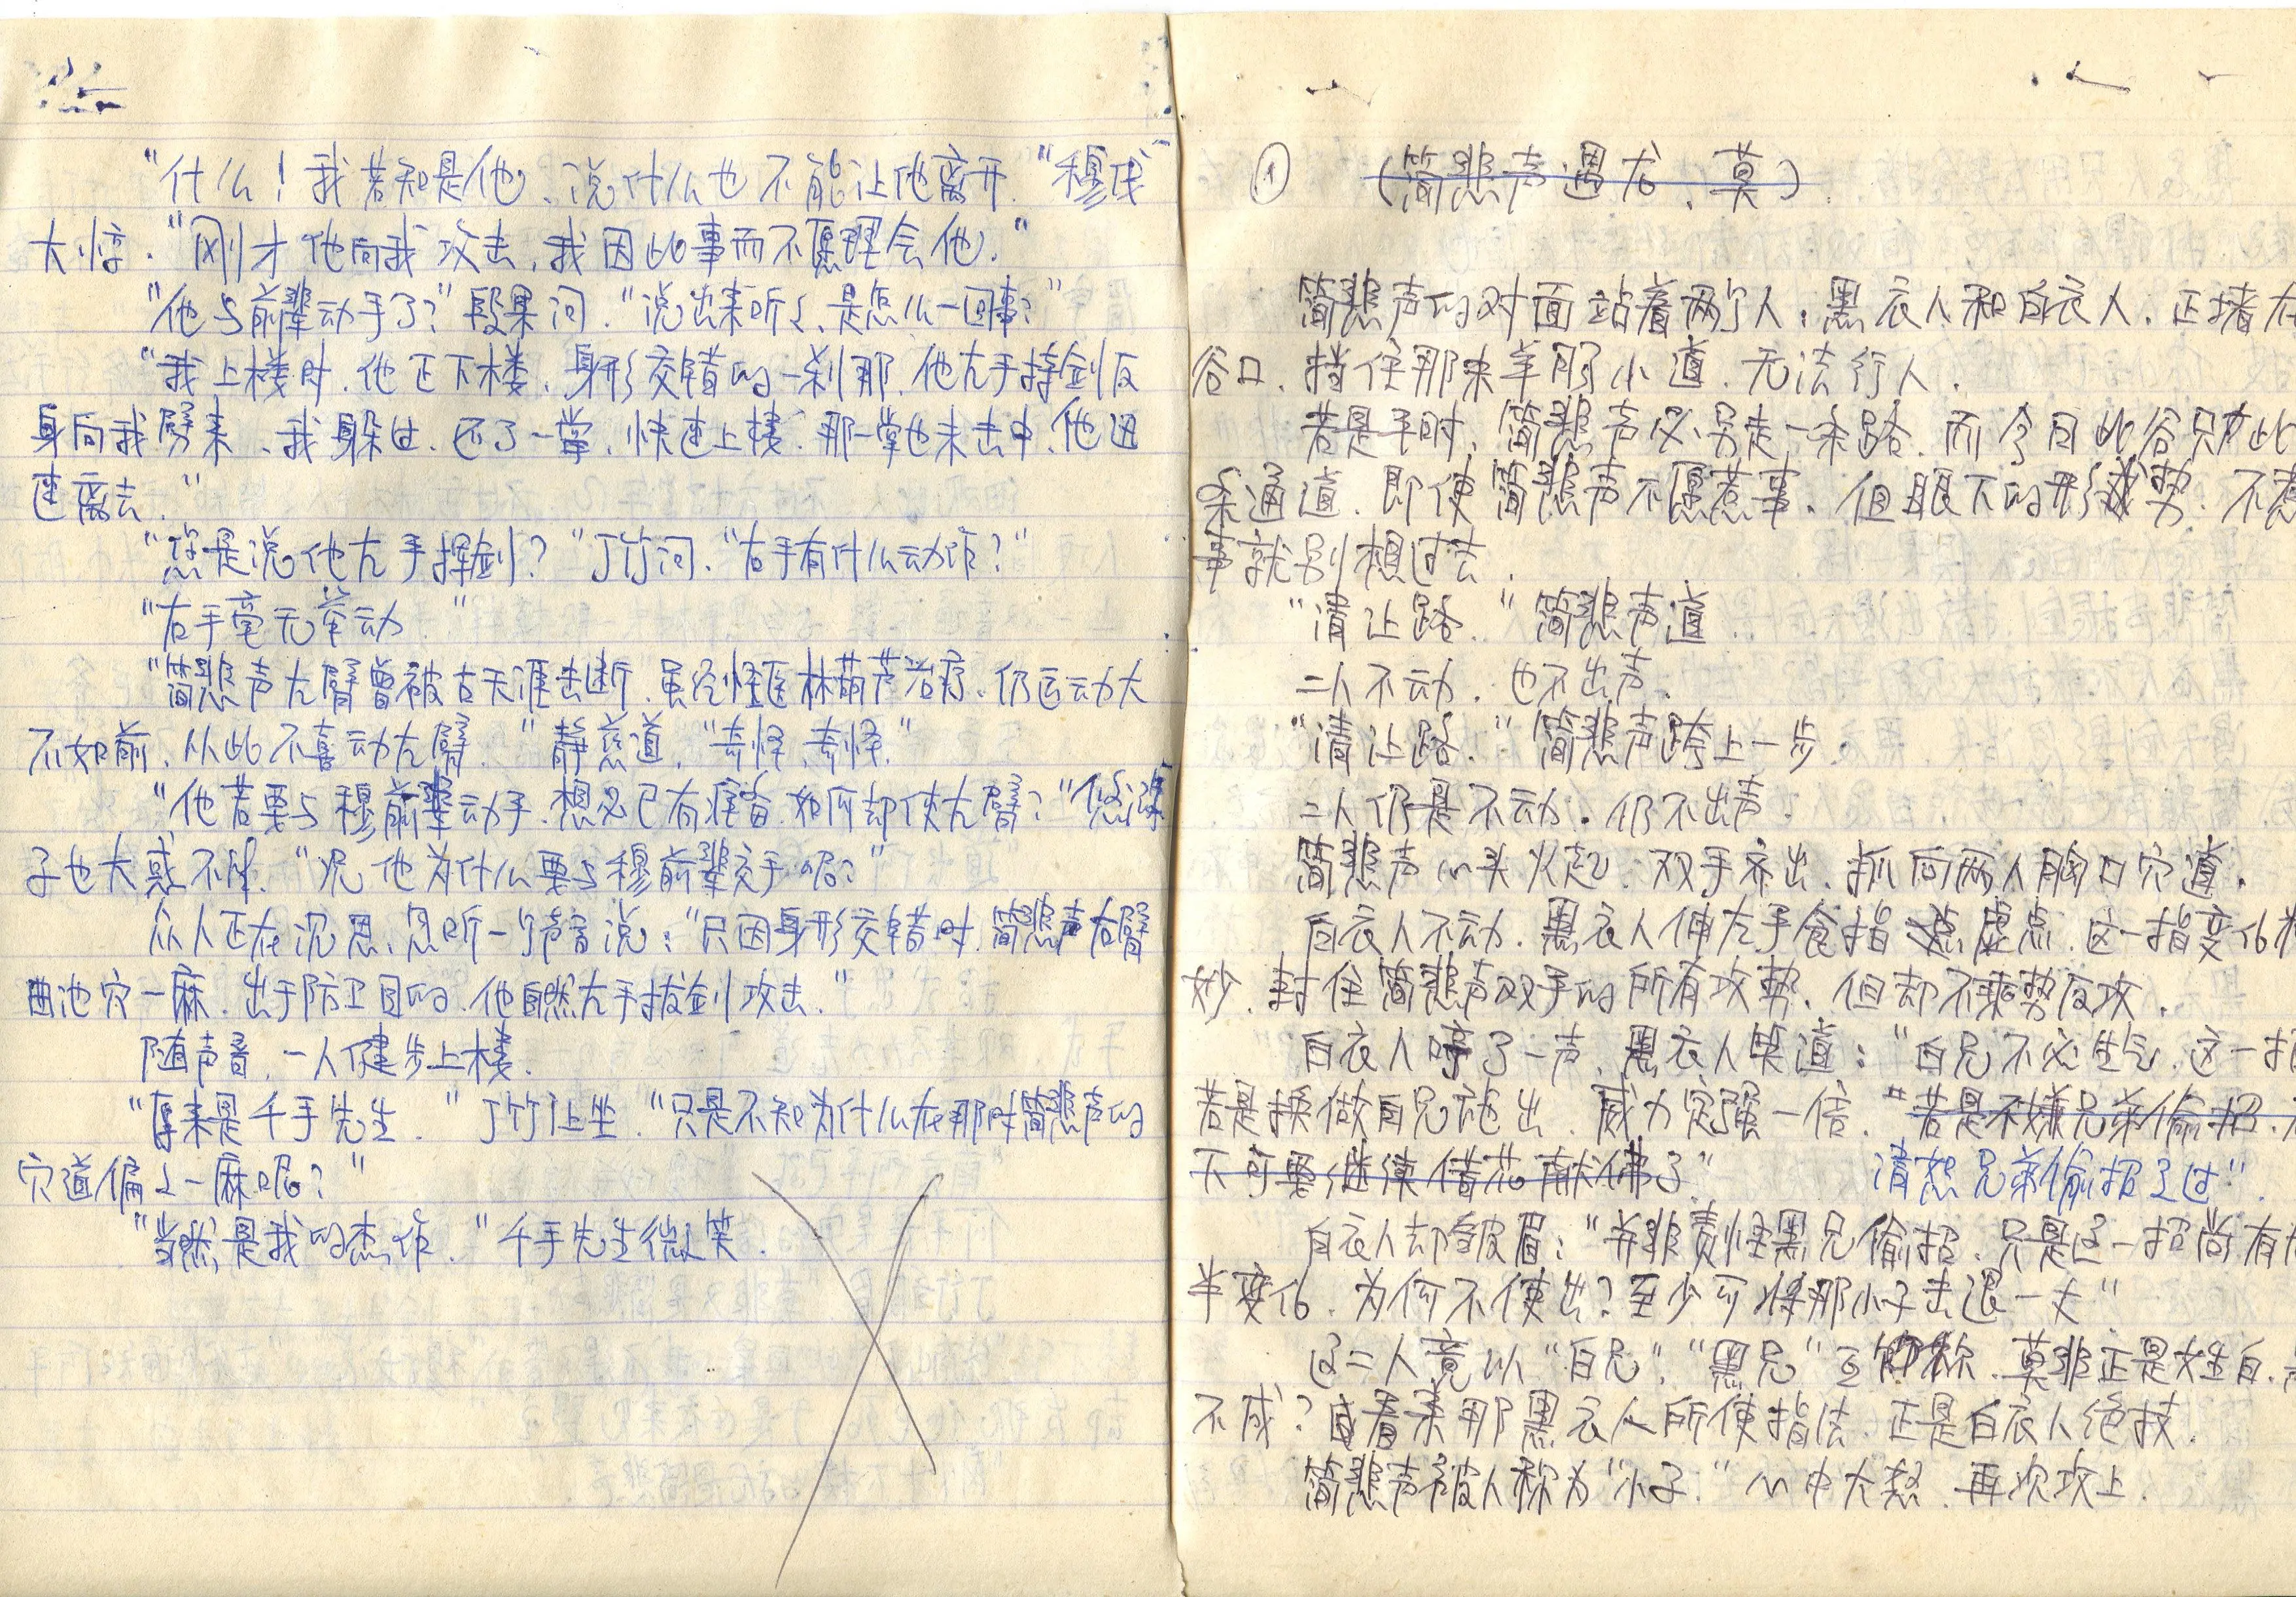 “什么！我若知是他、说什么也不能让他离开。”穆戌
大惊．“刚才他向我攻击，我因此事而不愿理会他．”
“他与前辈动手了？”段果问．“说出来听々、是怎么一回事？”
“我上楼时．他正下楼、身形交错的一刹那．他左手持剑反
身向我劈来、我躲过、还了一掌．快速上楼．那一掌也未击中、他迅
速离去．”
“您是说他左手挥剑？”丁竹问、“右手有什么动作？”
“右手毫无举动．”
“简悲声左臂曾被古天涯击断．虽经怪医林葫芦治疗、仍运动大
不如前、从此不喜动左臂．”静慈道，“奇怪、奇怪．”
“他若要与穆前辈动手．想必已有准备．如何却使左臂？”
子也大惑不解．“况他为什么要与穆前辈交手呢？”
众人正在沉思、忽听一个声音说：“只因身形交错时．简悲声右臂
曲池穴一麻．出于防卫目的．他自然左手拔剑攻击．”
随声音，一人健步上楼．
“原来是千手先生．”丁竹让坐．“只是不知为什么在那时简悲声的
穴道偏々一麻呢？”
“当然是我的杰作．”千手先生微笑．
① （简悲声遇龙、莫）
简悲声的对面站着两个人：黑衣人和白衣人．正堵在
谷口、挡住那来羊肠小道．无法行人．
若是平时、简悲声必另走一条路．而今日此谷只有此
条通道．即使简悲声不愿惹事．但眼下的形势．不惹
事就别想过去．
“请让路．”简悲声道．
二人不动．也不出声．
“请让路．”简悲声跨上一步．
二人仍是不动．仍不出声．
简悲声心头火起．双手齐出、抓向两人胸口穴道．
白衣人不动．黑衣人伸左手食指虚点．这一指变化
妙．封住简悲声双手的所有攻势．但却不乘势反攻．
白衣人哼了一声．黑衣人笑道：“白兄不必生气．这一招
若是换做白兄施出．威力定强一倍．“若是不嫌兄弟偷招．
不可要继续借花献佛了” 请恕兄弟偷招之过”．
白衣人却皱眉：“并非责怪黑兄偷招．只是这一招尚有
半变化．为何不使出？至少可将那小子击退一丈”
这二人竟以“白兄”“黑兄”互称．莫非正是姓白．
不成？看来那黑衣人所使指法．正是白衣人绝技．
简悲声被人称为“小子．”心中大怒．再次攻上．